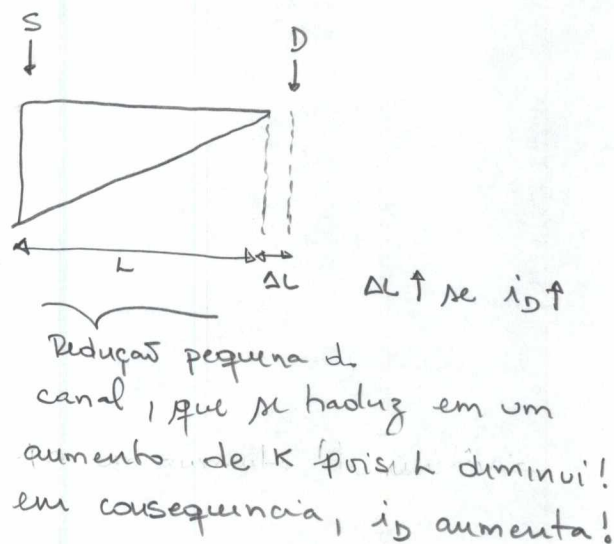 S
D
L
ΔL
ΔL ↑ se iD ↑
Redução pequena d.
canal, que se traduz em um
aumento de K pois L diminui!
em consequencia, iD aumenta!